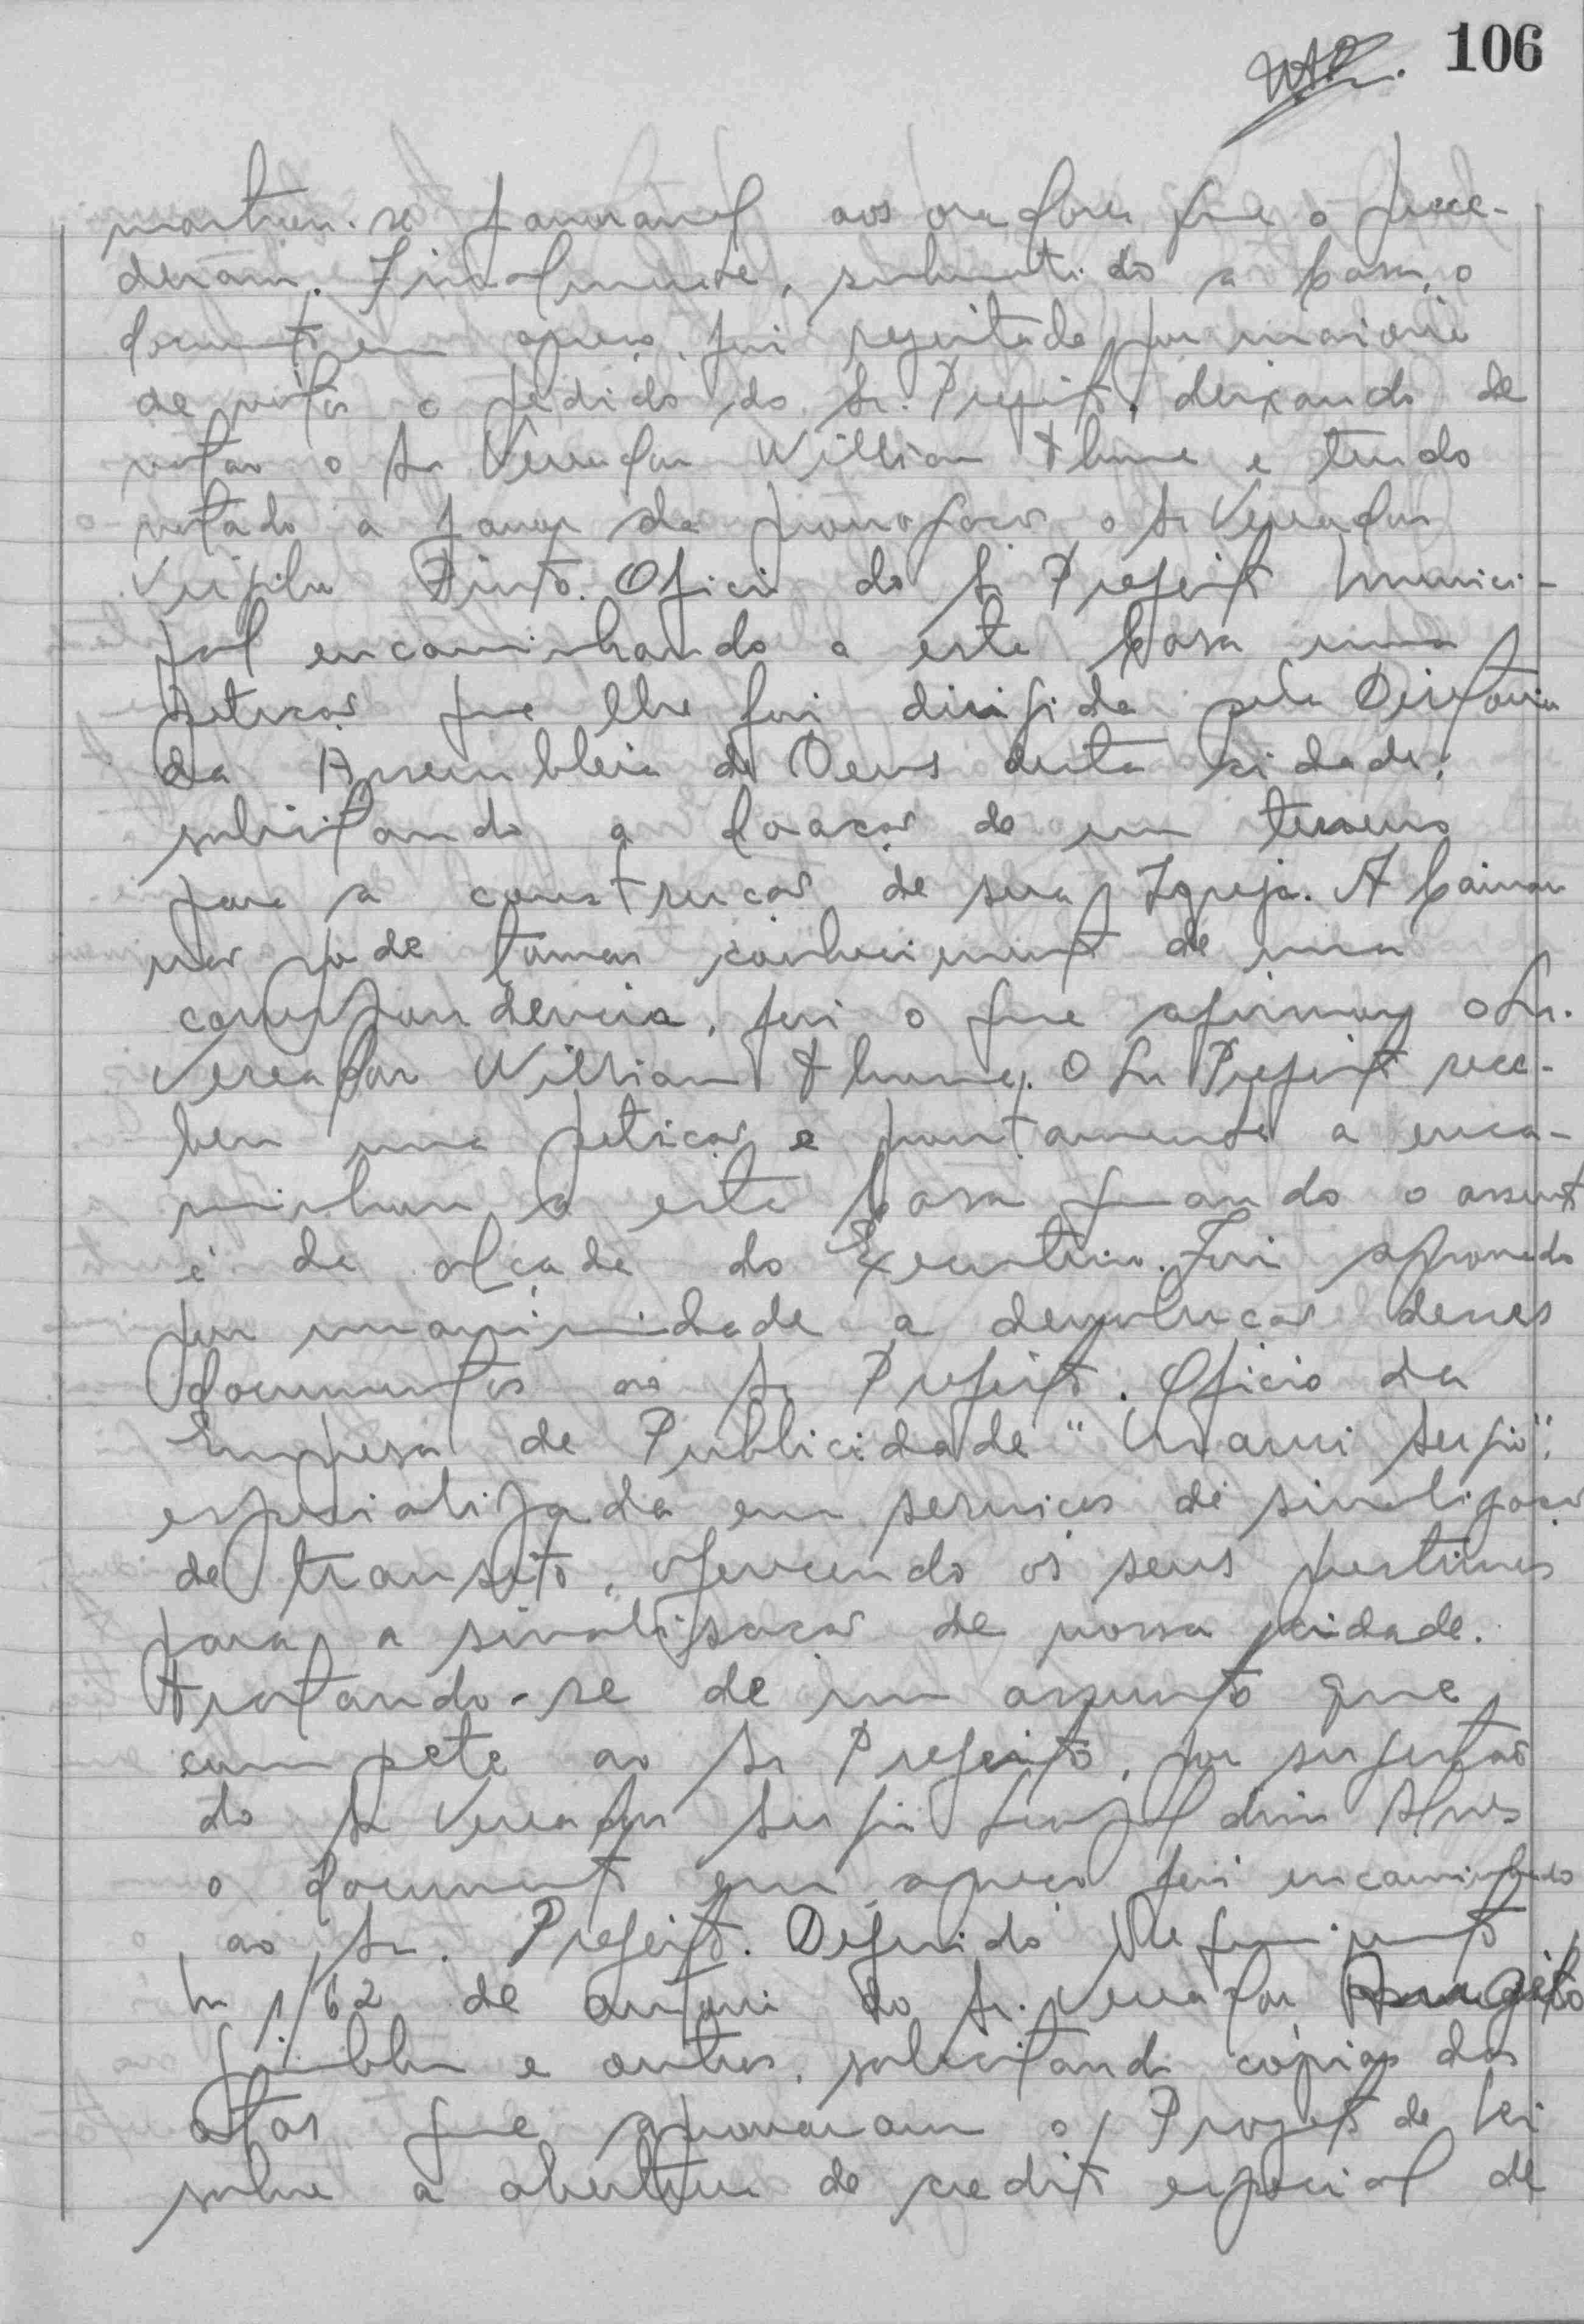 106
mostrou-se favoravel aos oradores que o prece-
deram. Finalmente, submetido a Casa, o
documento em apreço, foi rejeitado por maioria
de votos o pedido do Sr. Prefeito, deixando de
votar o Sr Vereador Willian Thume e tendo
votado a favor da prorogação o Sr Vereador
Virgilio Pinto. Oficio do Sr Prefeito Munici-
pal encaminhando a esta Casa uma
petição que lhe foi dirigida pela Diretoria
da Assembleia de Deus desta cidade,
solicitando a doação de um terreno
para a construção de sua Igreja. A Camara
não pode tomar conhecimento de uma
correspondencia, foi o que afirmou o Sr.
Vereador Willian Thume. O Sr Prefeito rece-
beu uma petição e prontamente a enca-
minhou a esta Casa quando o assunto
é da alçada do Executivo. Foi aprovado
por unanimidade a devolução desses
documentos ao Sr Prefeito. Oficio da
Empresa de Publicidade " Sergio",
especializada em serviços de sinalização
de transito, oferecendo os seus prestimos
para a sinalisação de nossa cidade.
Tratando-se de um assunto que
compete ao Sr Prefeito, por sugestão
do Sr Vereador Sergio Alves
o documento em apreço foi encaminhado
ao Sr. Prefeito. Deferido Requerimento
Nº 1/62 de autoria do Sr. Vereador
e outros, solicitando cópias das
atas que aprovaram o Projeto de Lei
sobre a abertura de credito especial de